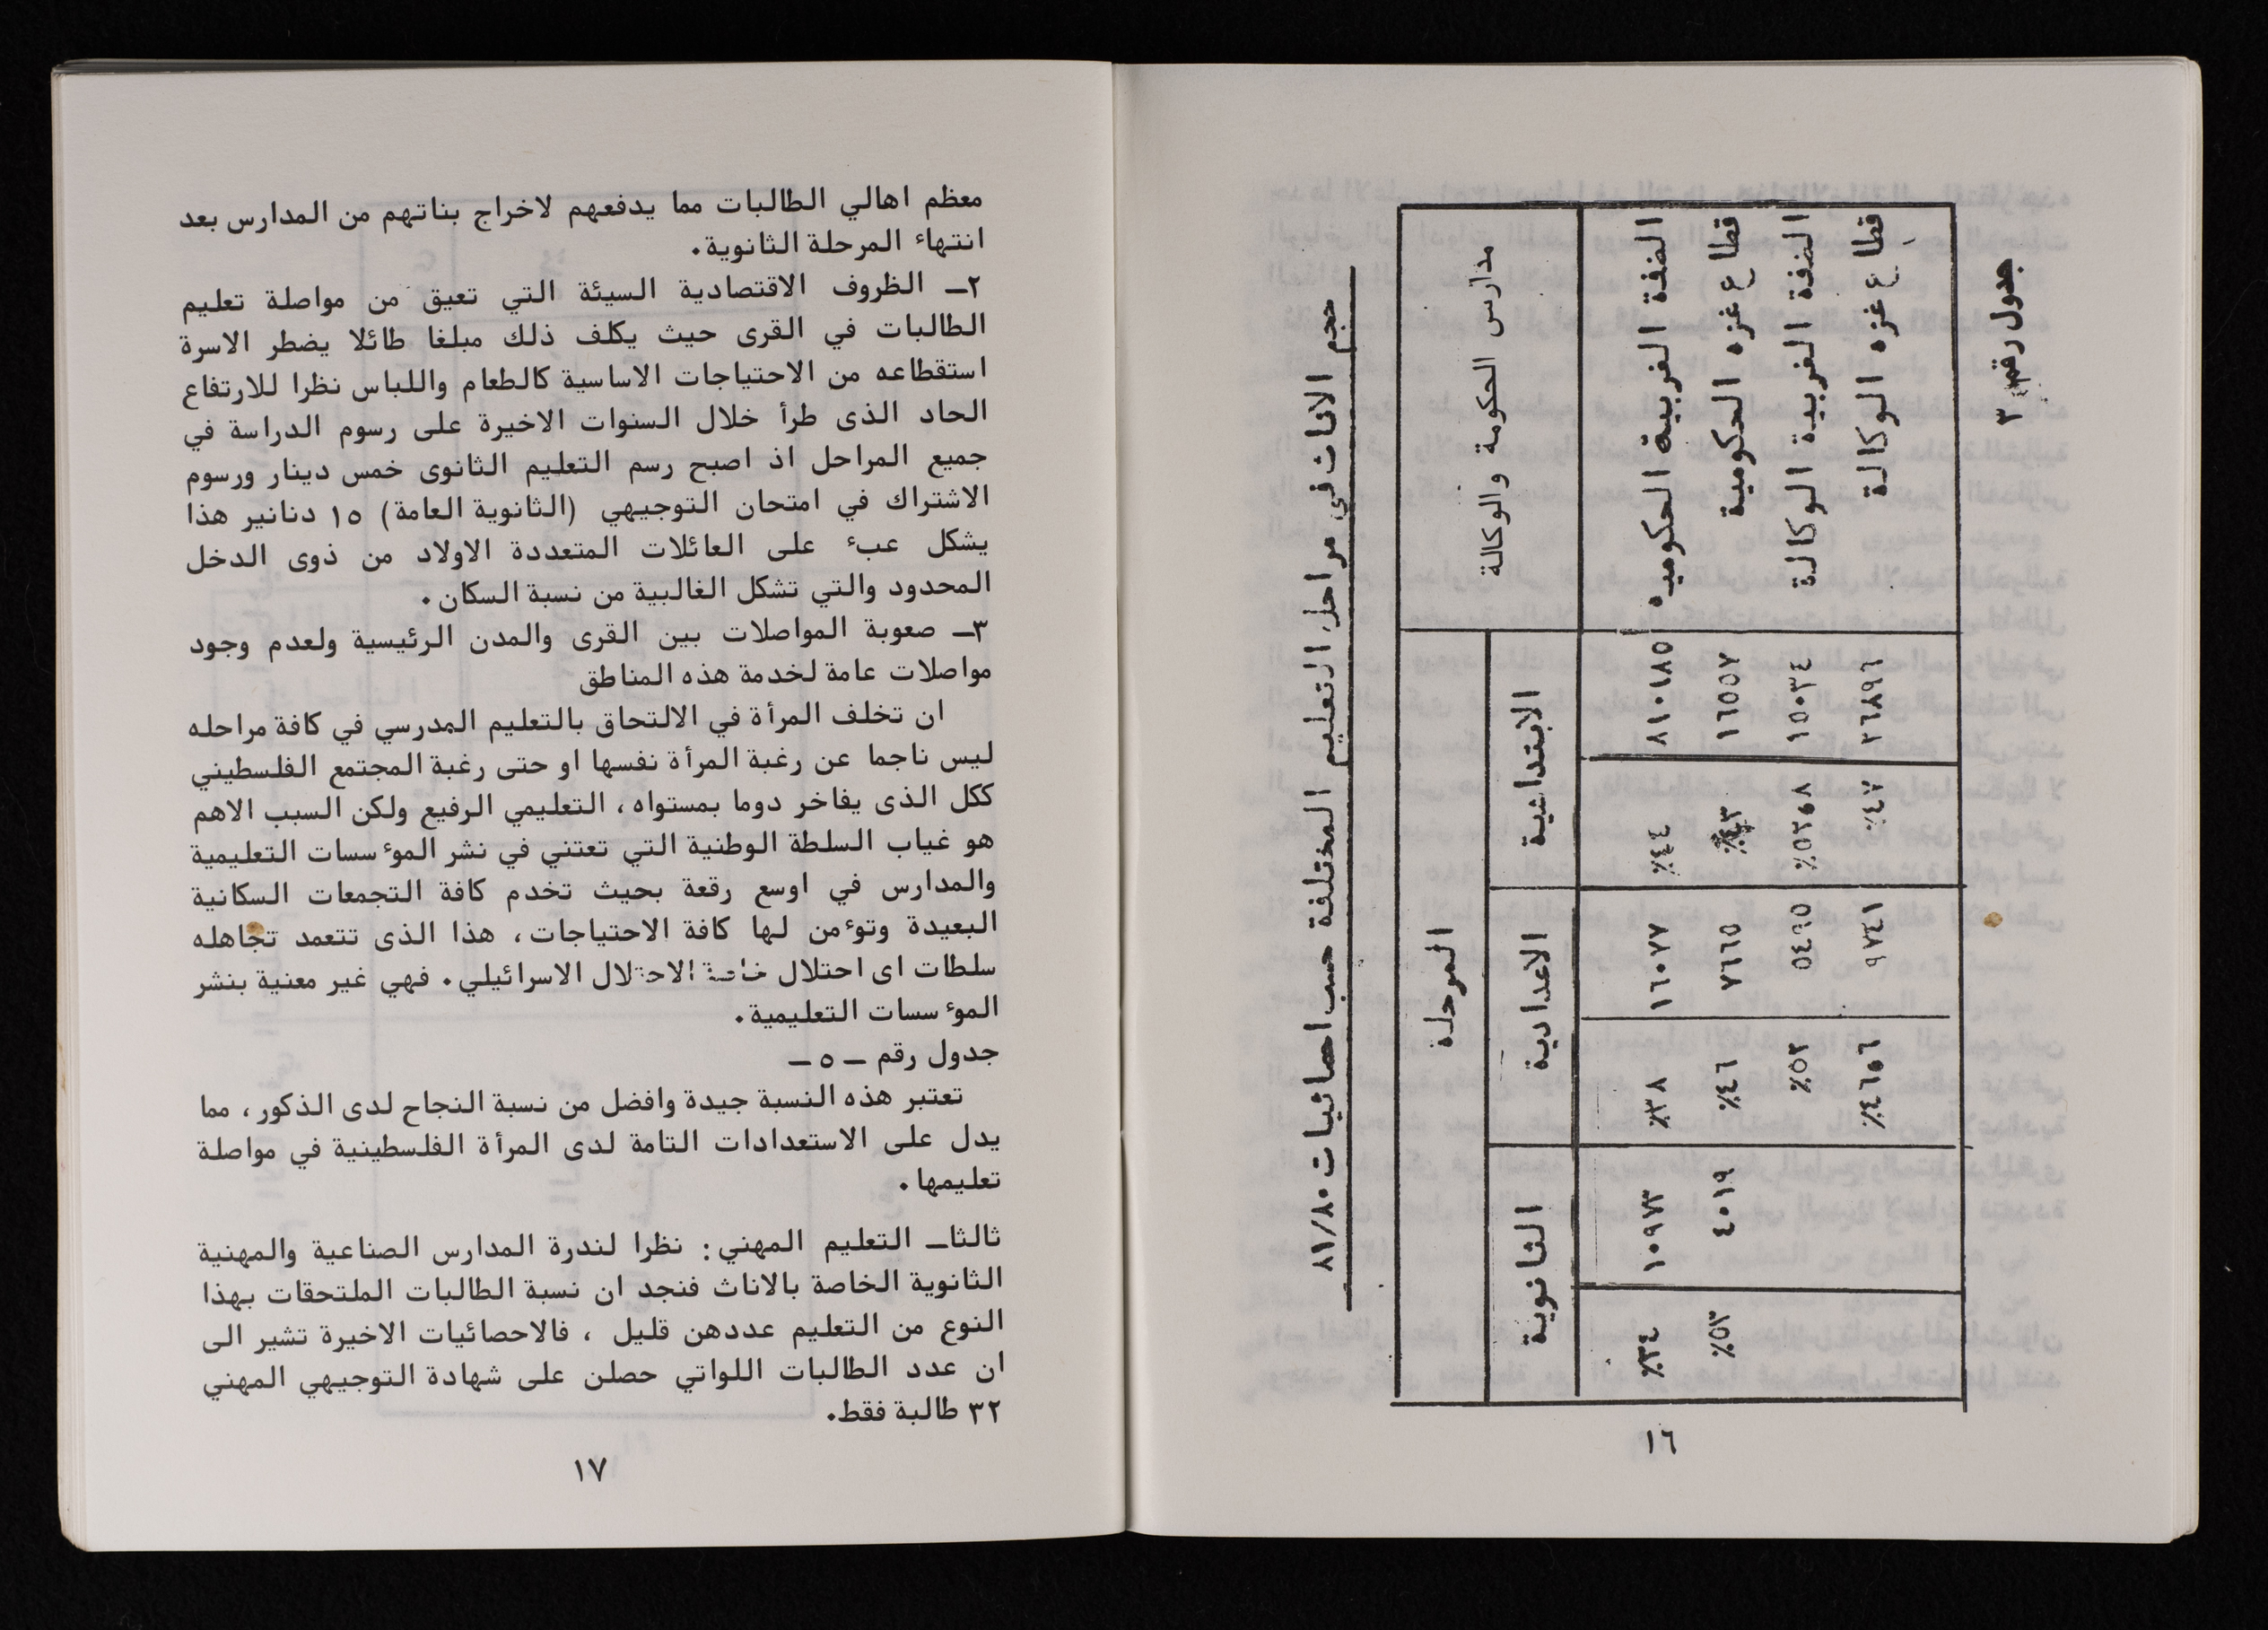 جدول رقم ٣
حجم الاناث في مراحل التعليم المختلفة حسب احصائيات ٨١/٨٠
مدارس الحكومة والوكالة
المرحلة
الابتدائية
الاعدادية
الثانوية
الضفة الغربية الحكوميه ٨١٠١٨٥ ٪٤٤ ١٦٠٧٧ ٪٣٨ ١٠٩٧٣ ٪٣٤
قطاع غزه الحكومية ١٦٥٥٧ ٪٤٣ ٧٦٦٥ ٪٤٦ ٤٠١٩ ٪٥٣
الضفة الغربية الوكالة ١٥٠٣٤ ٪٥٢,٨ ٥٤٦٥ ٪٥٢
قطاع غزه الوكالة ٢٦٨٩٦ ٪٤٧ ٩٧٤١ ٪٤٦,٦
١٦
معظم اهالي الطالبات مما يدفعهم لاخراج بناتهم من المدارس بعد
انتهاء المرحلة الثانوية.
٢ـ الظروف الاقتصادية السيئة التي تعيق من مواصلة تعليم
الطالبات في القرى حيث يكلف ذلك مبلغا طائلا يضطر الاسرة
استقطاعه من الاحتياجات الاساسية كالطعام واللباس نظرا للارتفاع
الحاد الذى طرأ خلال السنوات الاخيرة على رسوم الدراسة في
جميع المراحل اذ اصبح رسم التعليم الثانوى خمس دينار ورسوم
الاشتراك في امتحان التوجيهي (الثانوية العامة) ١٥ دنانير هذا
يشكل عبء على العائلات المتعددة الاولاد من ذوى الدخل
المحدود والتي تشكل الغالبية من نسبة السكان.
٣ـ صعوبة المواصلات بين القرى والمدن الرئيسية ولعدم وجود
مواصلات عامة لخدمة هذه المناطق
ان تخلف المرأة في الالتحاق بالتعليم المدرسي في كافة مراحله
ليس ناجما عن رغبة المرأة نفسها او حتى رغبة المجتمع الفلسطيني
ككل الذى يفاخر دوما بمستواه، التعليمي الرفيع ولكن السبب الاهم
هو غياب السلطة الوطنية التي تعتني في نشر الموءسسات التعليمية
والمدارس في اوسع رقعة بحيث تخدم كافة التجمعات السكانية
البعيدة وتوءمن لها كافة الاحتياجات، هذا الذى تتعمد تجاهله
سلطات اى احتلال خاصة الاحتلال الاسرائيلي. فهي غير معنية بنشر
الموءسسات التعليمية.
جدول رقم ـ ٥ ـ
تعتبر هذه النسبة جيدة وافضل من نسبة النجاح لدى الذكور، مما
يدل على الاستعدادات التامة لدى المرأة الفلسطينية في مواصلة
تعليمها.
ثالثا ـ التعليم المهني: نظرا لندرة المدارس الصناعية والمهنية
الثانوية الخاصة بالاناث فنجد ان نسبة الطالبات الملتحقات بهذا
النوع من التعليم عددهن قليل ، فالاحصائيات الاخيرة تشير الى
ان عدد الطالبات اللواتي حصلن على شهادة التوجيهي المهني
٣٢ طالبة فقط.
١٧